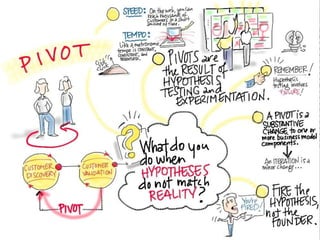 PIVOT
SPEED: On the web, you can
reach thousands of
customers in a short
period of time.
TEMPO:
Like a metronome
tempo is constant,
consistent, and
measurable.
PIVOTS are
the RESULT of
HYPOTHESIS
TESTING and
EXPERIMENTATION.
REMEMBER!
Hypothesis
testing involves
FAILURE!
A PIVOT is a
SUBSTANTIVE
CHANGE to one or
more business model
components.
An ITERATION is a
minor change...
CUSTOMER
DISCOVERY
CUSTOMER
VALIDATION
PIVOT
?
What do you
do when
HYPOTHESES
do not match
REALITY?
YOU'RE
FIRED!
FIRE the
HYPOTHESIS,
not the
FOUNDER.